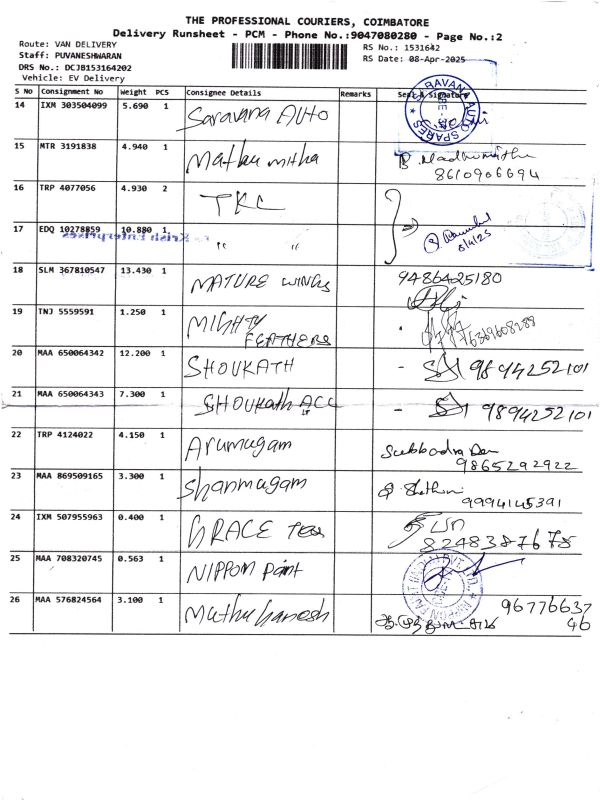 THE PROFESSIONAL COURIERS, COIMBATORE
Delivery Runsheet - PCM - Phone No.:9047080280 - Page No.:2
Route: VAN DELIVERY
Staff: PUVANESHWARAN
DRS No.: DCJB153164202
Vehicle: EV Delivery
RS No.: 1531642
RS Date: 08-Apr-2025
S No Consignment No Weight PCS Consignee Details Remarks Seal & Signature
14 IXM 303504099 5.690 1 Saravana Auto
SARAVANA AUTO SPARES
15 MTR 3191838 4.940 1 Mathu mitha
8610906694
16 TRP 4077056 4.930 2 TKC
17 EDQ 10278859 10.880 1 " "
8/4/25
Krish Enterprises
18 SLM 367810547 13.430 1 MATURE WINGS 9486425180
19 TNJ 5559591 1.250 1 MIGHTY
FEATHERS
6369608289
20 MAA 650064342 12.200 1 SHOUKATH - 9894252101
21 MAA 650064343 7.300 1 SHOUKATH ACC - 9894252101
22 TRP 4124022 4.150 1 Arumugam
9865292922
23 MAA 869509165 3.300 1 Shanmugam
9994145391
24 IXM 507955963 0.400 1 GRACE Tex
8248387678
25 MAA 708320745 0.563 1 NIPPOM Paint
26 MAA 576824564 3.100 1 Muthu Ganesh 96776637
46